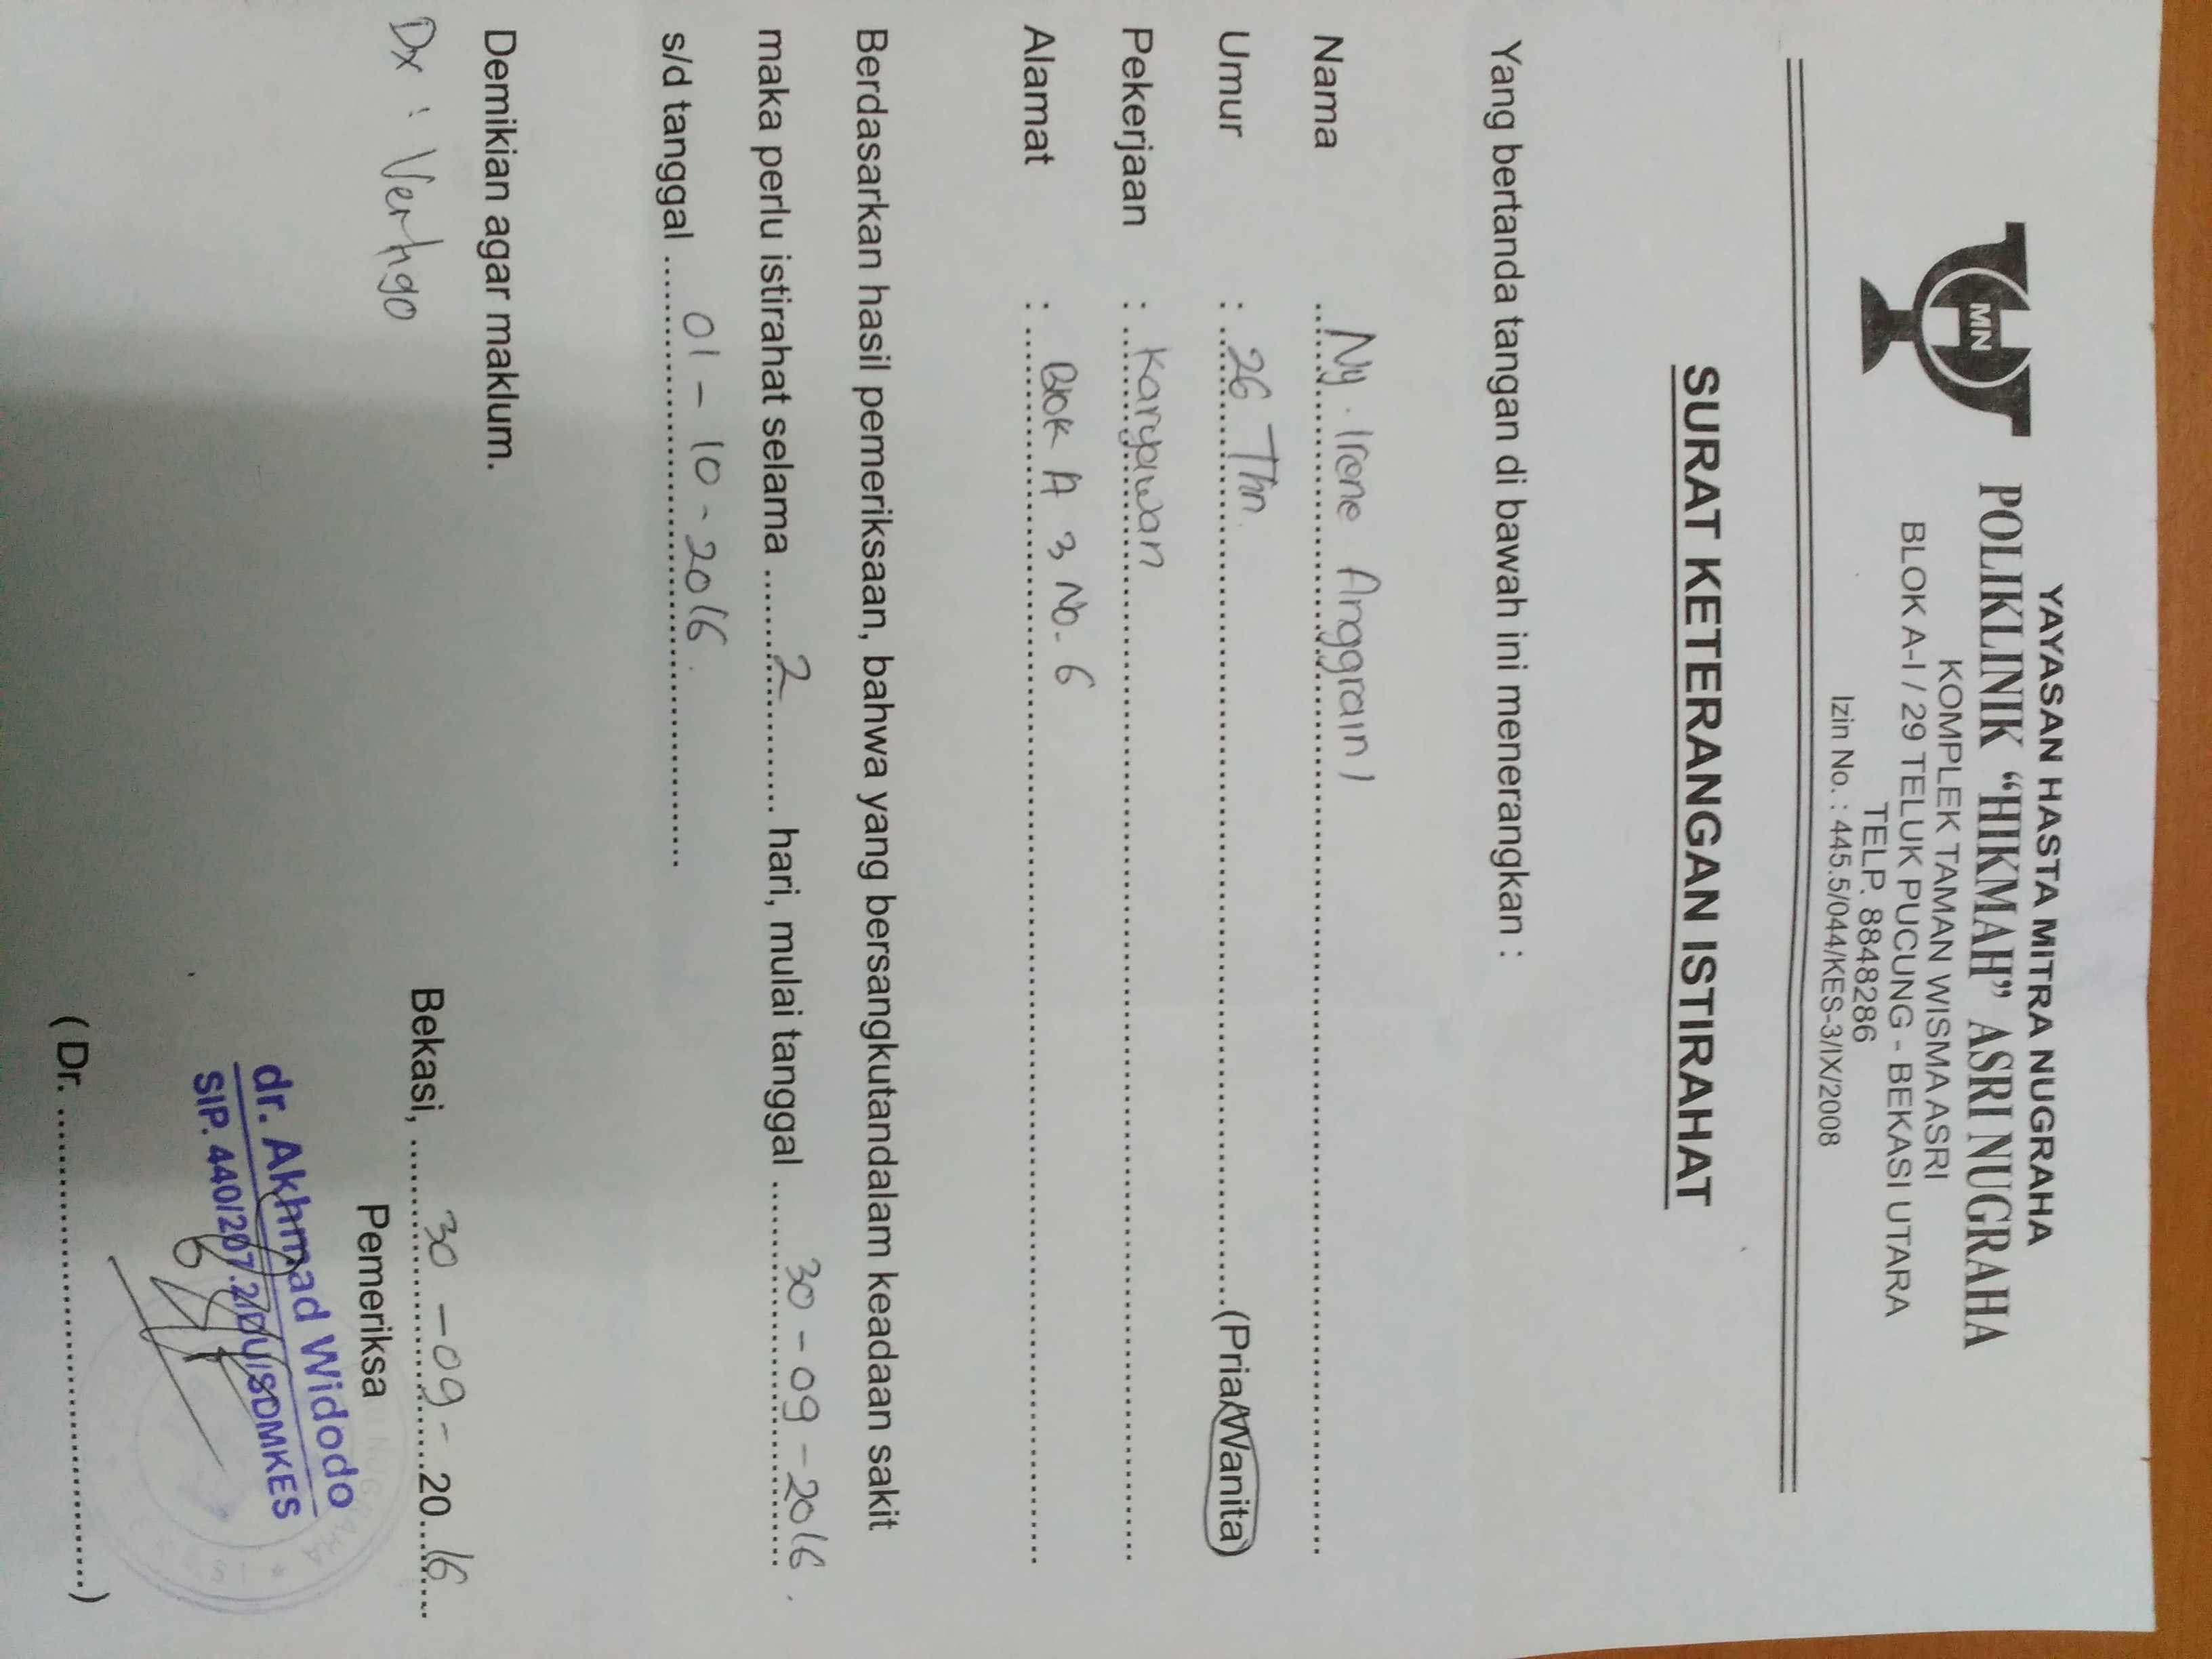 MN
YAYASAN HASTA MITRA NUGRAHA
POLIKLINIK “HIKMAH” ASRI NUGRAHA
KOMPLEK TAMAN WISMA ASRI
BLOK A-I / 29 TELUK PUCUNG - BEKASI UTARA
TELP. 8848286
Izin No. : 445.5/044/KES-3/IX/2008
SURAT KETERANGAN ISTIRAHAT
Yang bertanda tangan di bawah ini menerangkan :
Nama Ny. Irene Anggraini
Umur : 26 Thn. (Pria/Wanita)
Pekerjaan : Karyawan
Alamat : Blok A 3 No. 6
Berdasarkan hasil pemeriksaan, bahwa yang bersangkutandalam keadaan sakit
maka perlu istirahat selama 2 hari, mulai tanggal 30-09-2016.
s/d tanggal 01-10-2016.
Demikian agar maklum.
Dx : Vertigo
Bekasi, 30-09-2016
Pemeriksa
dr. Akhmad Widodo
SIP. 440/207.2/DU/SDMKES
NUGRAHA
( Dr. ........................................)